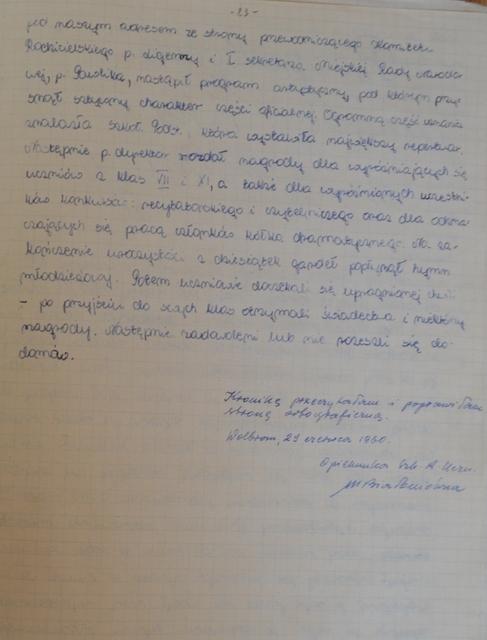 - 23 -
pod naszym adresem ze strony przewodniczącego Komitetu
Rodzicielskiego p. i I sekretarza Miejskiej Rady Narodo-
wej, p. nastąpił program artystyczny, pod którym prys-
nął sztywny charakter części oficjalnej. Ogromną część uznania
znalazła szkol. która wystawiła największy repertuar.
Następnie p. dyrektor rozdał nagrody dla wyróżniających się
uczniów z klas VII i XI, a także dla wyróżnionych uczestni-
ków konkursu: recytatorskiego i czytelniczego oraz dla odzna-
czających się pracą członków kółka dramatycznego. Na za-
kończenie uroczystości z dziesiątek gardeł popłynął hymn
młodzieżowy. Potem uczniowie doczekali się upragnionej chwili
- po przyjściu do swych klas otrzymali świadectwa i niektórzy
nagrody. Następnie zadowoleni lub nie rozeszli się do
domów.
Kronikę przeczytałam i poprawiłam
stronę ortograficzną.
Wolbrom, 29 czerwca 1960.
Opiekunka